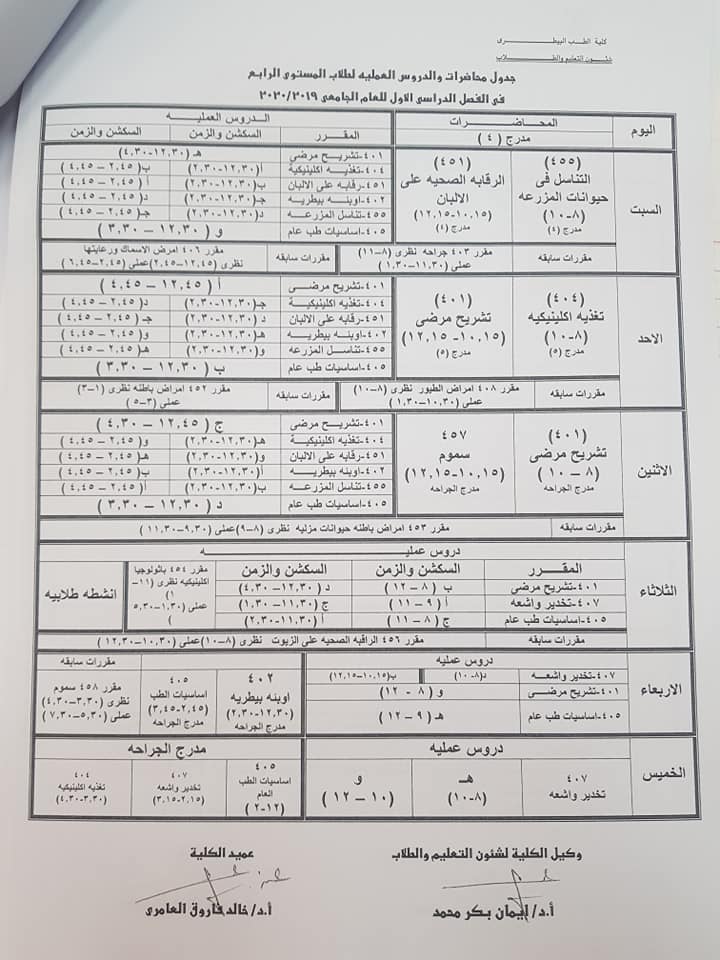 كلية الطب البيطرى
شئون التعليم والطلاب
جدول محاضرات والدروس العمليه لطلاب المستوى الرابع
فى الفصل الدراسى الاول للعام الجامعى ٢٠٢٠/٢٠١٩
اليوم
المحاضرات
مدرج (٤)
الدروس العمليه
المقرر
السكشن والزمن
السكشن والزمن
السبت
(٤٥٥)
التناسل فى
حيوانات المزرعه
(٨-١٠)
مدرج (٤)
(٤٥١)
الرقابه الصحيه على
الالبان
(١٠,١٥-١٢,١٥)
مدرج (٤)
٤٠١-تشريح مرضي هـ (١٢,٣٠-٤,٣٠)
٤٠٤- تغذيه اكلينيكية أ(١٢,٣٠-٢,٣٠) ب(٢,٤٥ – ٤,٤٥)
٤٥١- رقابه على الالبان ب(١٢,٣٠-٢,٣٠) أ (٢,٤٥ – ٤,٤٥)
٤٠٢- اوبئه بيطريه ج(١٢,٣٠-٢,٣٠) د(٢,٤٥ – ٤,٤٥)
٤٥٥- تناسل المزرعه د(١٢,٣٠-٢,٣٠) ج(٢,٤٥ – ٤,٤٥)
٤٠٥- اساسيات طب عام و (١٢,٣٠ – ٣,٣٠)
مقررات سابقه
مقرر ٤٠٣ جراحه نظرى (٨-١١)
عملى (١١,٣٠-١,٣٠)
مقررات سابقه
مقرر ٤٠٦ امرض الاسماك ورعايتها
نظرى (١٢,٤٥-٢,٤٥)عملى (٢,٤٥-٦,٤٥)
الاحد
(٤٠٤)
تغذيه اكلينيكيه
(٨-١٠)
مدرج (٥)
(٤٠١)
تشريح مرضى
(١٠,١٥- ١٢,١٥)
مدرج (٥)
٤٠١-تشريح مرضى أ (١٢,٤٥ – ٤,٤٥)
٤٠٤- تغذيه اكلينيكية ج(١٢,٣٠-٢,٣٠) د(٢,٤٥ – ٤,٤٥)
٤٥١- رقابه على الالبان د(١٢,٣٠-٢,٣٠) ج(٢,٤٥ – ٤,٤٥)
٤٠٢- اوبئه بيطريه هـ(١٢,٣٠-٢,٣٠) و(٢,٤٥ – ٤,٤٥)
٤٥٥- تناسل المزرعه و(١٢,٣٠-٢,٣٠) هـ(٢,٤٥ – ٤,٤٥)
٤٠٥- اساسيات طب عام ب (١٢,٣٠ – ٣,٣٠)
مقررات سابقه
مقرر ٤٠٨ امراض الطيور نظرى (٨-١٠)
عملى (١٠,٣٠-١,٣٠)
مقررات سابقه
مقرر ٤٥٢ امراض باطنه نظرى (١-٣)
عملى (٣-٥)
الاثنين
(٤٠١)
تشريح مرضى
(٨ – ١٠)
مدرج الجراحه
٤٥٧
سموم
(١٠,١٥-١٢,١٥)
مدرج الجراحه
٤٠١-تشريح مرضى ج (١٢,٤٥ – ٤,٣٠)
٤٠٤- تغذيه اكلينيكية هـ(١٢,٣٠-٢,٣٠) و(٢,٤٥ – ٤,٤٥)
٤٥١- رقابه على الالبان و(١٢,٣٠-٢,٣٠) هـ(٢,٤٥ – ٤,٤٥)
٤٠٢- اوبئه بيطريه أ(١٢,٣٠-٢,٣٠) ب(٢,٤٥ – ٤,٤٥)
٤٥٥- تناسل المزرعه ب(١٢,٣٠-٢,٣٠) أ(٢,٤٥ – ٤,٤٥)
٤٠٥- اساسيات طب عام د (١٢,٣٠ – ٣,٣٠)
مقررات سابقه
مقرر ٤٥٣ امراض باطنه حيوانات مزليه نظرى (٨-٩)عملى (٩,٣٠-١١,٣٠)
الثلاثاء
دروس عمليه
المقرر السكشن والزمن السكشن والزمن
٤٠١-تشريح مرضى ب (٨ – ١٢) د (١٢,٣٠ – ٤,٣٠)
٤٠٧-تخدير واشعه أ (٩ – ١١) ج (١١,٣٠-١,٣٠)
٤٠٥- اساسيات طب عام ج (٨ – ١١) أ (١١,٣٠-٢,٣٠)
مقرر ٤٥٤ باثولوجيا
اكلينيكيه نظرى (١١-
١)
عملى (١,٣٠-٥,٣٠
)
انشطه طلابيه
مقررات سابقه
مقرر ٤٥٦ الراقبه الصحيه على الزيوت نظرى (٨-١٠)عملى (١٠,٣٠-١٢,٣٠)
الاربعاء
دروس عمليه
٤٠٧-تخدير واشعه د(٨-١٠) ب(١٠,١٥-١٢,١٥)
٤٠١-تشريح مرضى و (٨ - ١٢)
٤٠٥-اساسيات طب عام هـ (٩ – ١٢)
٤٠٢
اوبئه بيطريه
(١٢,٣٠-٢,٣٠)
مدرج الجراحه
٤٠٥
اساسيات الطب
(٢,٤٥-٣,٤٥)
مدرج الجراحه
مقررات سابقه
مقرر ٤٥٨ سموم
نظرى (٣,٣٠-٤,٣٠)
عملى (٥,٣٠-٧,٣٠)
الخميس
دروس عمليه
٤٠٧
تخدير واشعه
هـ
(٨-١٠)
و
(١٠ – ١٢)
مدرج الجراحه
٤٠٥
اساسيات الطب
العام
(١٢-٢)
٤٠٧
تخدير واشعه
(٢,١٥-٣,١٥)
٤٠٤
تغذيه اكلينيكيه
(٣,٣٠-٤,٣٠)
وكيل الكلية لشئون التعليم والطلاب
عميد الكلية
أ.د/ إيمان بكر محمد
أ.د/ خالد فاروق العامرى